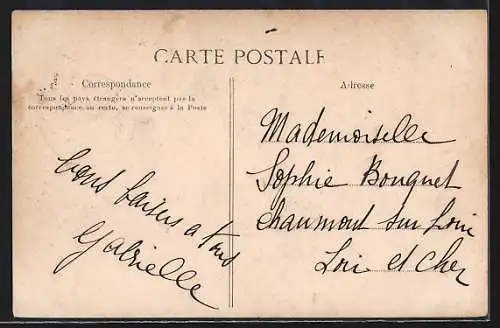 CARTE POSTALE
Correspondance
Tous les pays étrangers n'acceptent pas la
correspondance au recto, se renseigner à la Poste
bons baisers a tous
Gabrielle
Adresse
Mademoiselle
Sophie Bouquet
Chaumont sur Loire
Loir et Cher